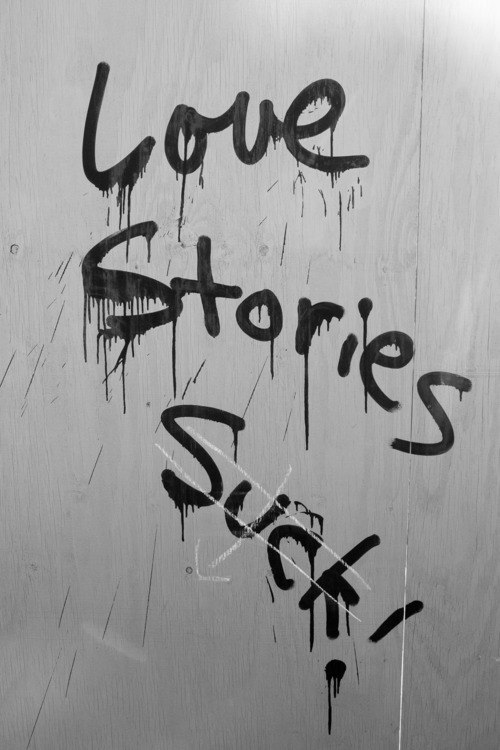 Love
Stories
Suck!